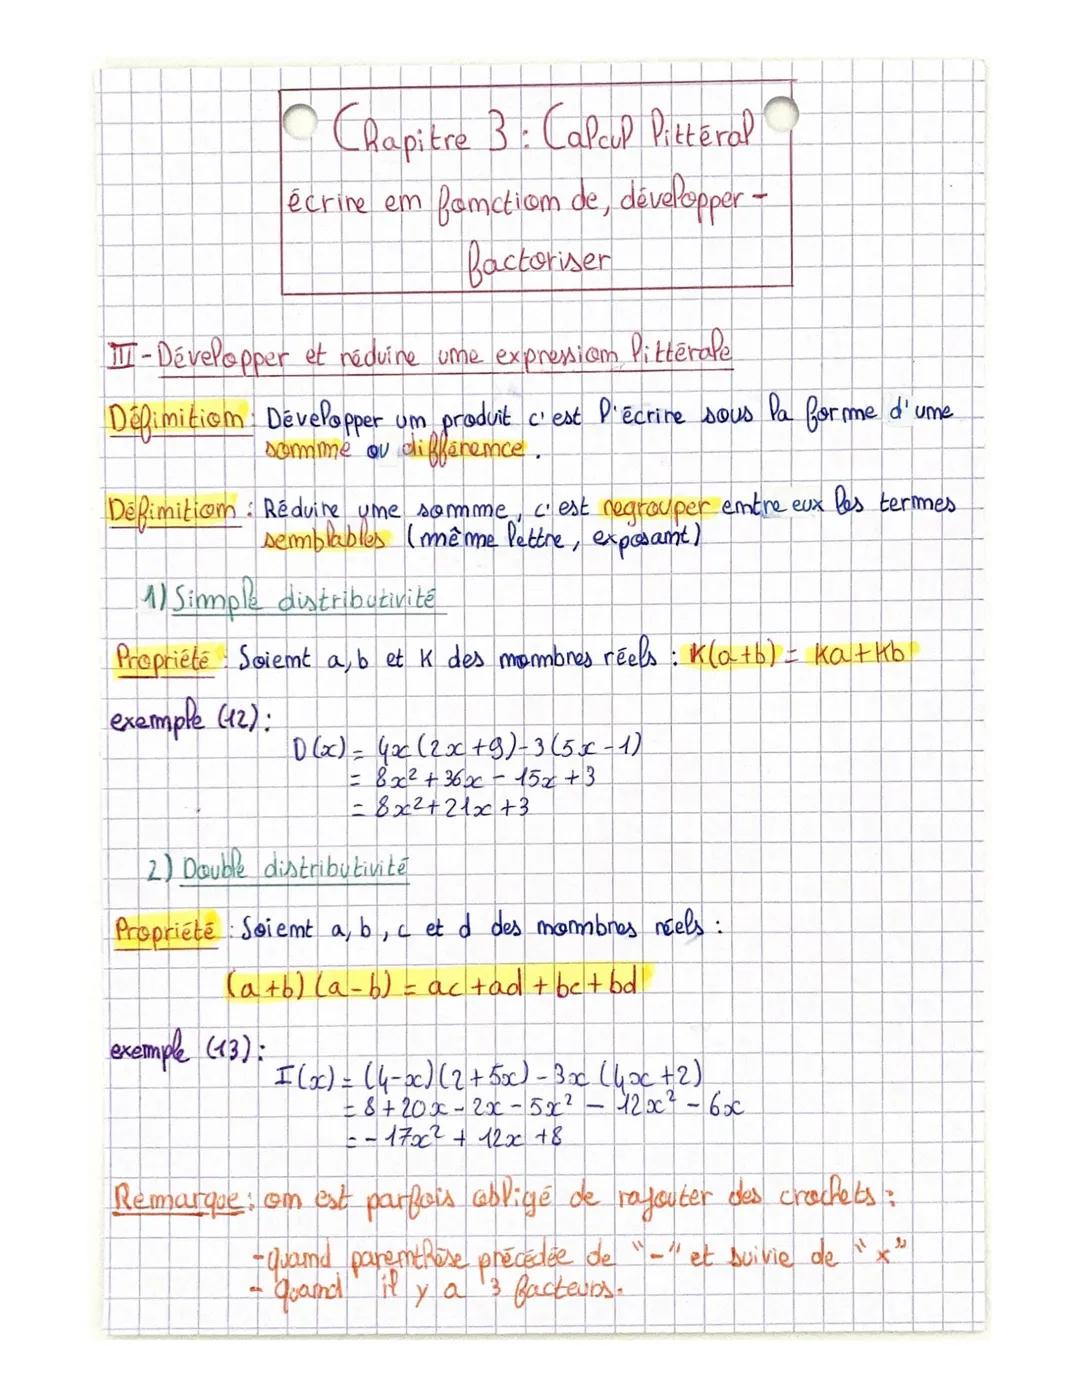 Chapitre 3 : Calcul littéral
écrire en fonction de, développer -
factoriser
III - Développer et réduire une expression littérale
Définition : Développer un produit c'est l'écrire sous la forme d'une
somme ou différence.
Définition : Réduire une somme, c'est regrouper entre eux les termes
semblables (même lettre, exposant)
1) Simple distributivité
Propriété : Soient a, b et K des nombres réels : K(a+b) = Ka+Kb
exemple (12) :
D(x) = 4x(2x+9)-3(5x-1)
= 8x² + 36x - 15x + 3
= 8x²+21x+3
2) Double distributivité
Propriété : Soient a, b, c et d des nombres réels :
(a+b)(a-b) = ac+ad+bc+bd
exemple (13) :
I(x) = (4-x)(2+5x) - 3x(4x+2)
= 8+20x-2x-5x² - 12x² - 6x
= -17x² + 12x +8
Remarque : on est parfois obligé de rajouter des crochets :
- quand parenthèse précédée de "-" et suivie de "x"
- quand il y a 3 facteurs.